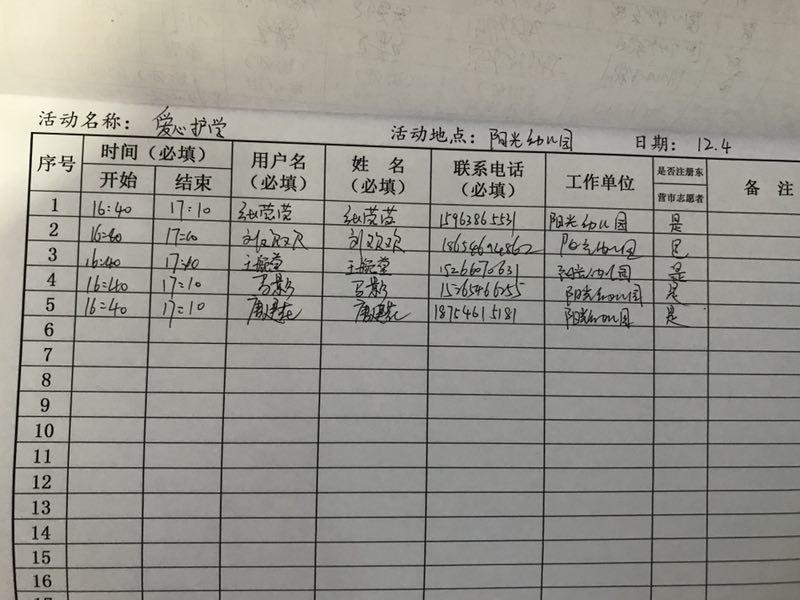 活动名称： 爱心护学 活动地点： 阳光幼儿园 日期： 12.4
序号 时间（必填） 用户名（必填） 姓 名（必填） 联系电话（必填） 工作单位 是否注册东营市志愿者 备 注
开始 结束
1 16:40 17:10 张莹莹 张莹莹 15963865531 阳光幼儿园 是
2 16:40 17:10 刘欢欢 刘欢欢 18654694862 阳光幼儿园 是
3 16:40 17:10 15266070631 阳光幼儿园 是
4 16:40 17:10 马影 马影 阳光幼儿园 是
5 16:40 17:10 18754615181 阳光幼儿园 是
6
7
8
9
10
11
12
13
14
15
16